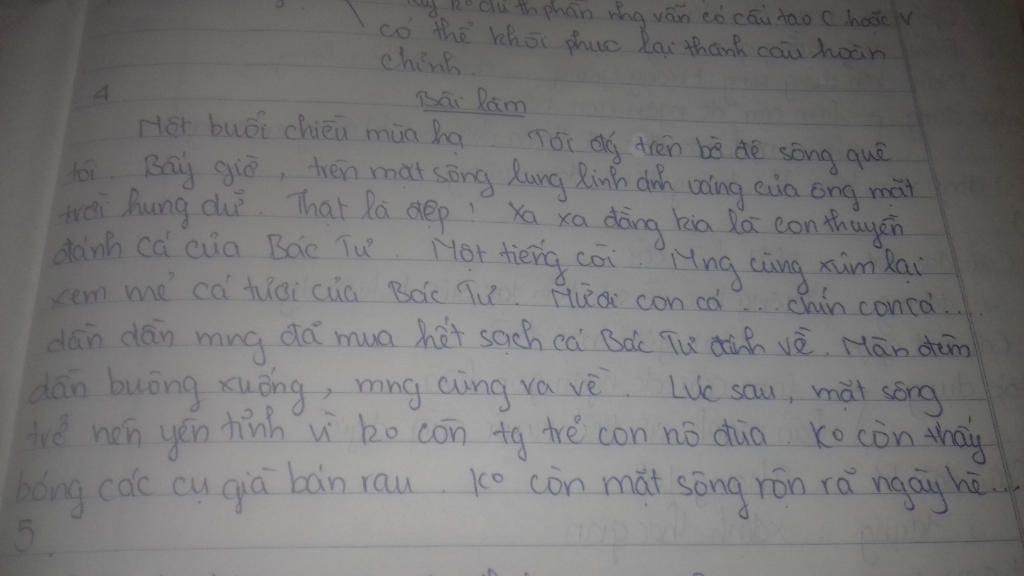 ko đủ th phần nhg vẫn có cấu tạo C hoặc V
có thể khôi phục lại thành câu hoàn
chỉnh.
4 Bài làm
Một buổi chiều mùa hạ. Tôi đứg trên bờ đê sông quê
tôi. Bấy giờ, trên mặt sông lung linh ánh vàng của ông mặt
trời hung dữ. Thật là đẹp! Xa xa đằng kia là con thuyền
đánh cá của Bác Tư. Một tiếng còi. Mng cùng xúm lại
xem mẻ cá tươi của Bác Tư. Mười con cá... chín con cá....
dần dần mng đã mua hết sạch cá Bác Tư đánh về. Màn đêm
dần buông xuống, mng cùng ra về. Lúc sau, mặt sông
trở nên yên tĩnh vì ko còn tg trẻ con nô đùa. Ko còn thấy
bóng các cụ già bán rau. Ko còn mặt sông rộn rã ngày hè...
5